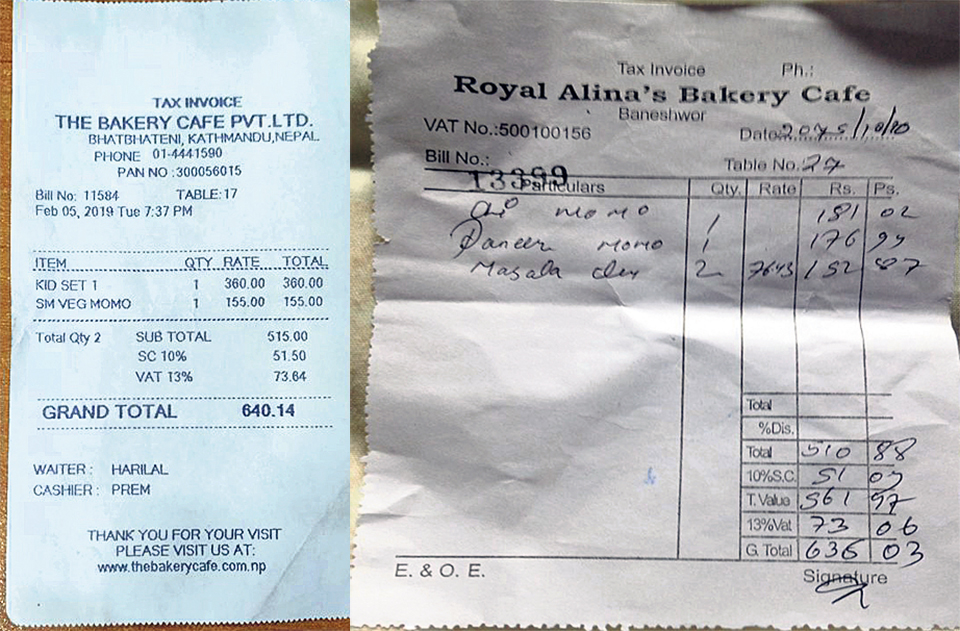 TAX INVOICE
THE BAKERY CAFE PVT.LTD.
BHATBHATENI, KATHMANDU,NEPAL
PHONE 01-4441590
PAN NO :300056015
Bill No: 11584 TABLE:17
Feb 05, 2019 Tue 7:37 PM
ITEM QTY RATE TOTAL
KID SET 1 1 360.00 360.00
SM VEG MOMO 1 155.00 155.00
Total Qty 2 SUB TOTAL 515.00
SC 10% 51.50
VAT 13% 73.64
GRAND TOTAL 640.14
WAITER : HARILAL
CASHIER : PREM
THANK YOU FOR YOUR VISIT
PLEASE VISIT US AT:
www.thebakerycafe.com.np
Tax Invoice Ph.:
Royal Alina's Bakery Cafe
Baneshwor
VAT No.:500100156 Date: 2075/10/20
Bill No.: Table No. 27
13399
Particulars Qty. Rate Rs. Ps.
momo 1 181 02
Paneer momo 1 176 99
Masala 2 7643 152 87
Total
%Dis.
Total 510 88
10%S.C. 51 09
T. Value 561 97
13%Vat 73 06
G. Total 636 03
E. & O. E.
Signature